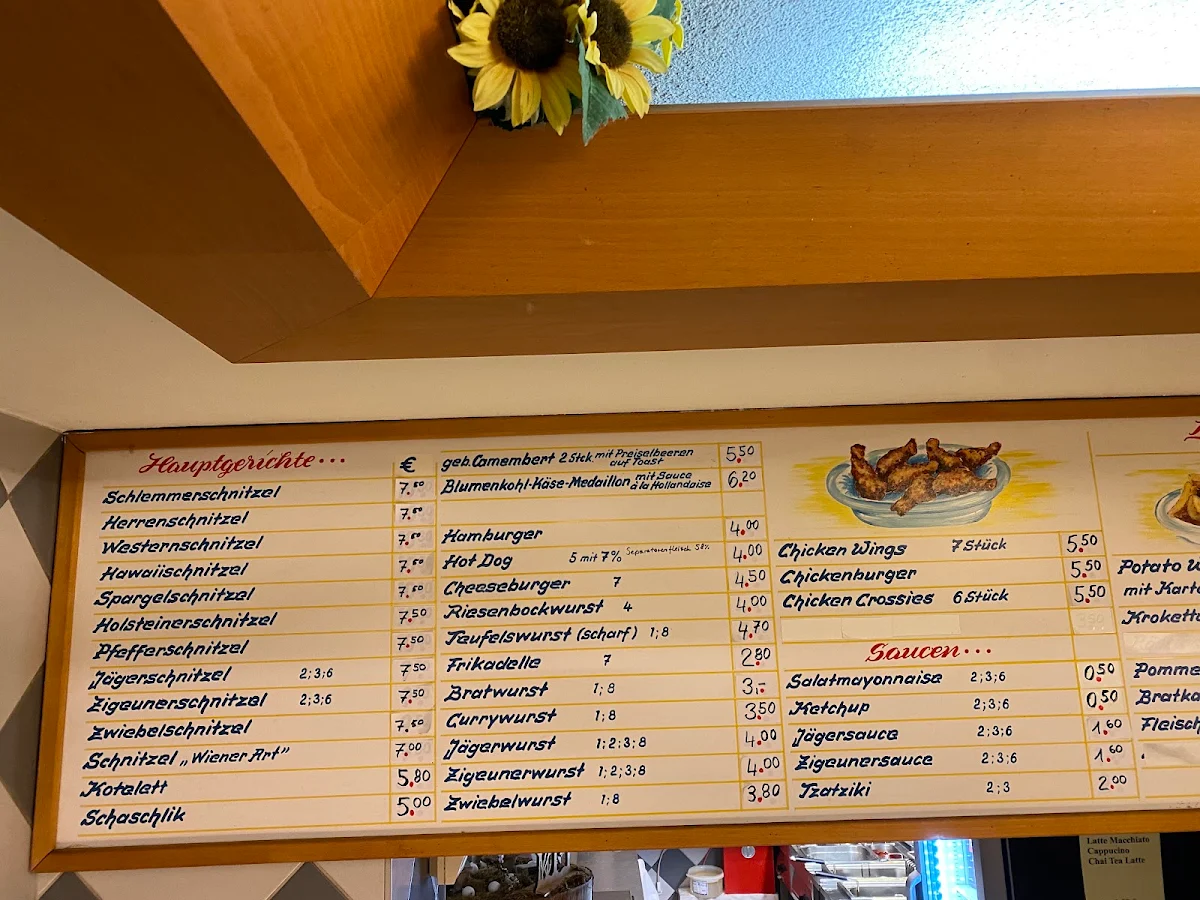 Hauptgerichte... €
Schlemmerschnitzel 7.50
Herrenschnitzel 7.50
Westernschnitzel 7.50
Hawaiischnitzel 7.50
Spargelschnitzel 7.50
Holsteinerschnitzel 7.50
Pfefferschnitzel 7.50
Jägerschnitzel 2;3;6 7.50
Zigeunerschnitzel 2;3;6 7.50
Zwiebelschnitzel 7.50
Schnitzel „Wiener Art" 7.00
Kotelett 5.80
Schaschlik 5.00
geb. Camembert 2 Stck. mit Preiselbeeren auf Toast 5.50
Blumenkohl-Käse-Medaillon mit Sauce à la Hollandaise 6.20
Hamburger 4.00
Hot Dog 5 mit 7% Separatorenfleisch 58% 4.00
Cheeseburger 7 4.50
Riesenbockwurst 4 4.00
Teufelswurst (scharf) 1;8 4.70
Frikadelle 7 2.80
Bratwurst 1;8 3.-
Currywurst 1;8 3.50
Jägerwurst 1;2;3;8 4.00
Zigeunerwurst 1;2;3;8 4.00
Zwiebelwurst 1;8 3.80
Chicken Wings 7 Stück 5.50
Chickenburger 5.50
Chicken Crossies 6 Stück 5.50
Saucen...
Salatmayonnaise 2;3;6 0.50
Ketchup 2;3;6 0.50
Jägersauce 2;3;6 1.60
Zigeunersauce 2;3;6 1.60
Tzatziki 2;3 2.00
Potato W
mit Karto
Krokett
Pomme
Bratka
Fleisch
Latte Macchiato
Cappucino
Chai Tea Latte